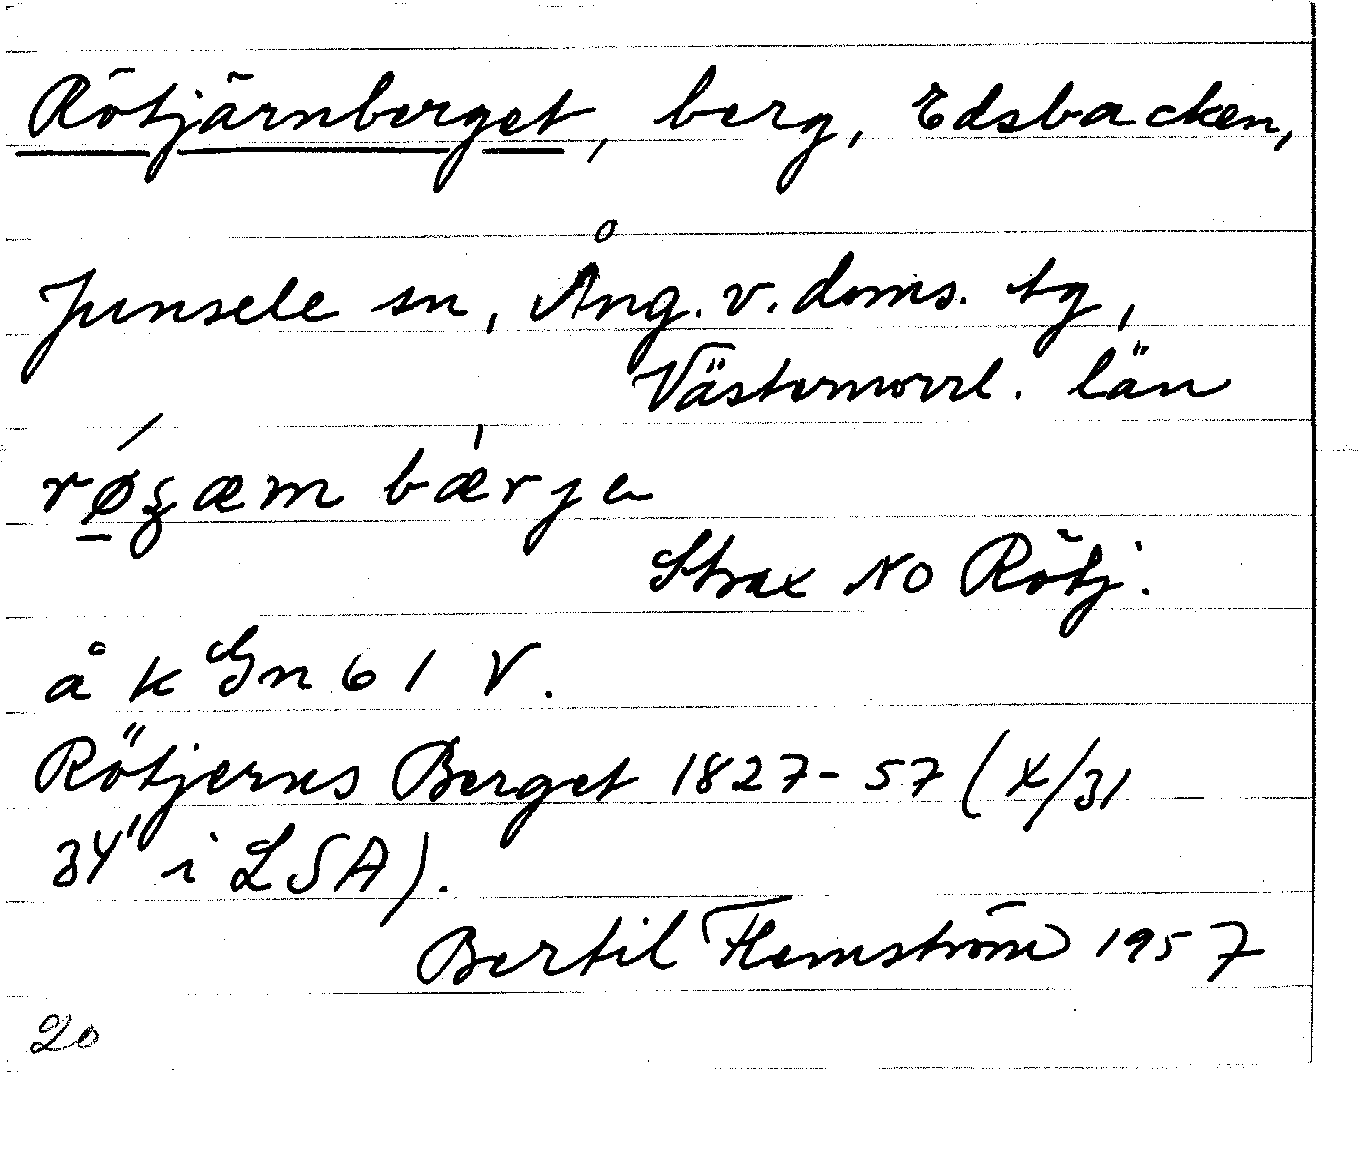 Rötjärnberget, berg, Edsbacken,
Junsele sn, Ång. v. doms. tg,
Västernorrl. län
røʒæm bærje
Strax NO Rötj.
å k Gn 61 V.
Rötjerns Berget 1827-57 (X/31
34' i LSA).
Bertil Flemström 1957
20